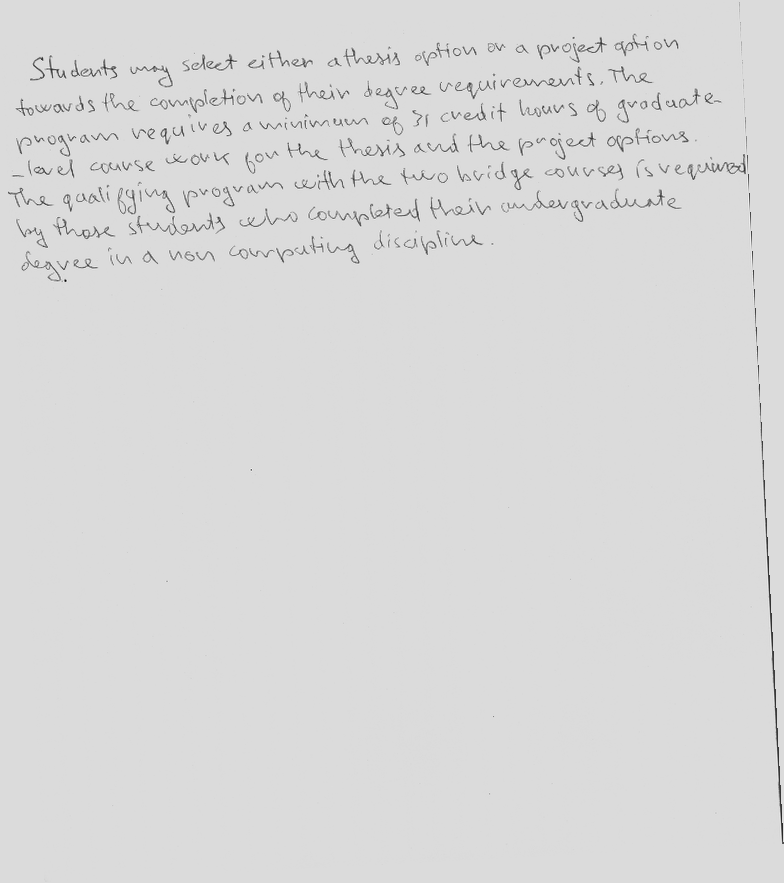 Students may select either a thesis option or a project option
towards the completion of their degree requirements. The
program requires a minimum of 31 credit hours of graduate-
-level course work for the thesis and the project options.
The qualifying program with the two bridge courses is required
by those students who completed their undergraduate
degree in a non computing discipline.